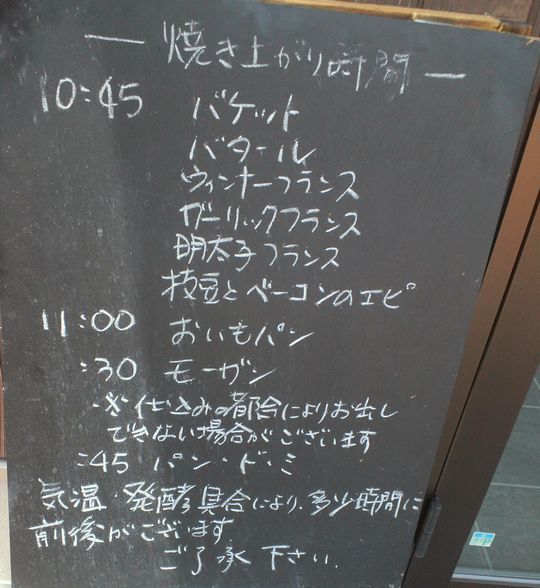 — 焼き上がり時間 —
10:45 バケット
バタール
ウィンナーフランス
ガーリックフランス
明太子フランス
枝豆とベーコンのエピ
11:00 おいもパン
:30 モーガン
・※仕込みの都合によりお出し
できない場合がございます
:45 パン・ド・ミ
気温・発酵具合により、多少時間に
前後がございます
ご了承下さい.